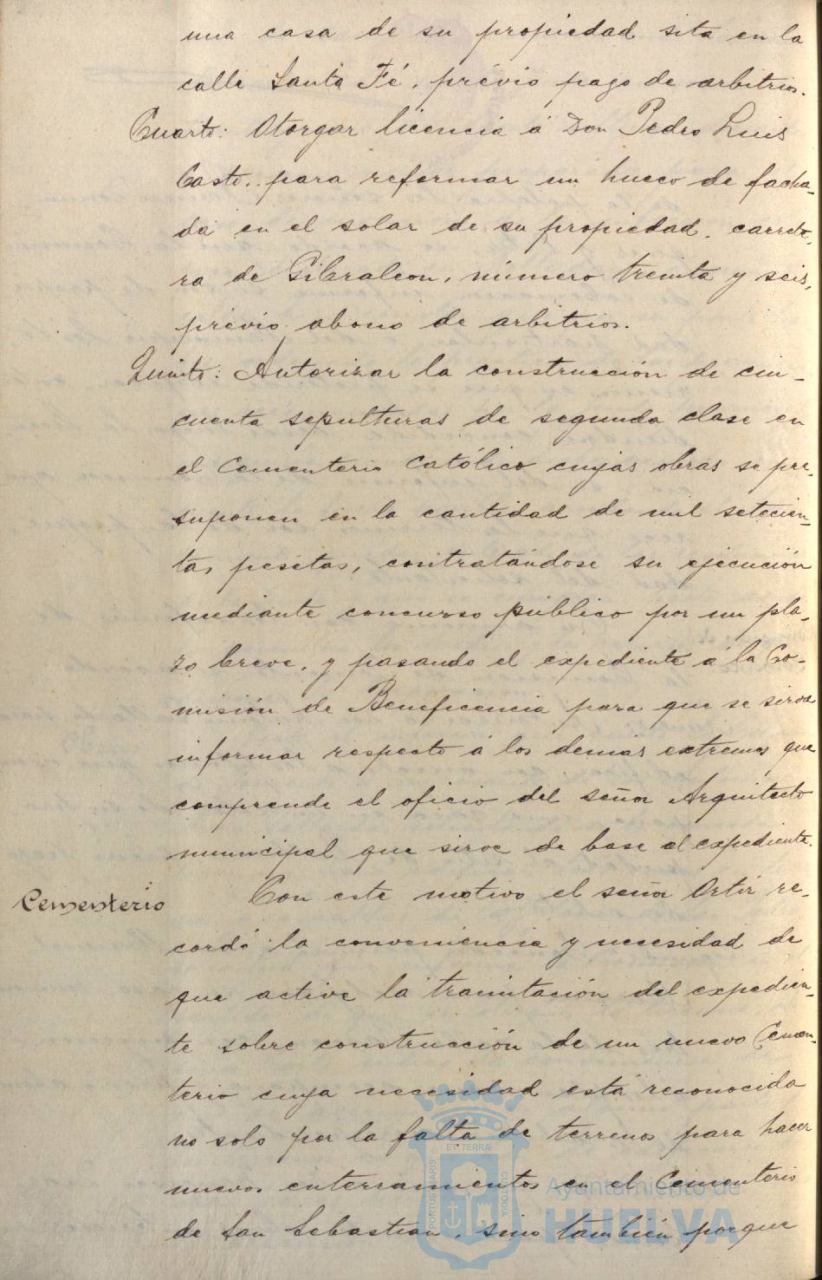 una casa de su propiedad sita en la
calle Santa Fé, prévio pago de arbitrios.
Cuarto: Otorgar licencia á Don Pedro Luis
Casto, para reformar un hueco de facha-
da en el solar de su propiedad, carrete-
ra de Gibraleon, número treinta y seis,
prévio abono de arbitrios.
Quinto: Autorizar la construcción de cin-
cuenta sepulturas de segunda clase en
el Cementerio Católico cuyas obras se pre-
suponen en la cantidad de mil setecien-
tas pesetas, contratándose su ejecución
mediante concurso público por un pla-
zo breve, y pasando el expediente á la Co-
misión de Beneficencia para que se sirva
informar respecto á los demás extremos que
comprende el oficio del señor Arquitecto
municipal que sirve de base al expediente.
Cementerio
Con este motivo el señor Ortiz re-
cordó la conveniencia y necesidad de
que active la tramitación del expedien-
te sobre construcción de un nuevo Cemen-
terio cuya necesidad está reconocida
no solo por la falta de terrenos para hacer
nuevos enterramientos en el Cementerio
de San Sebastian, sino también porque
Ayuntamiento de
HUELVA